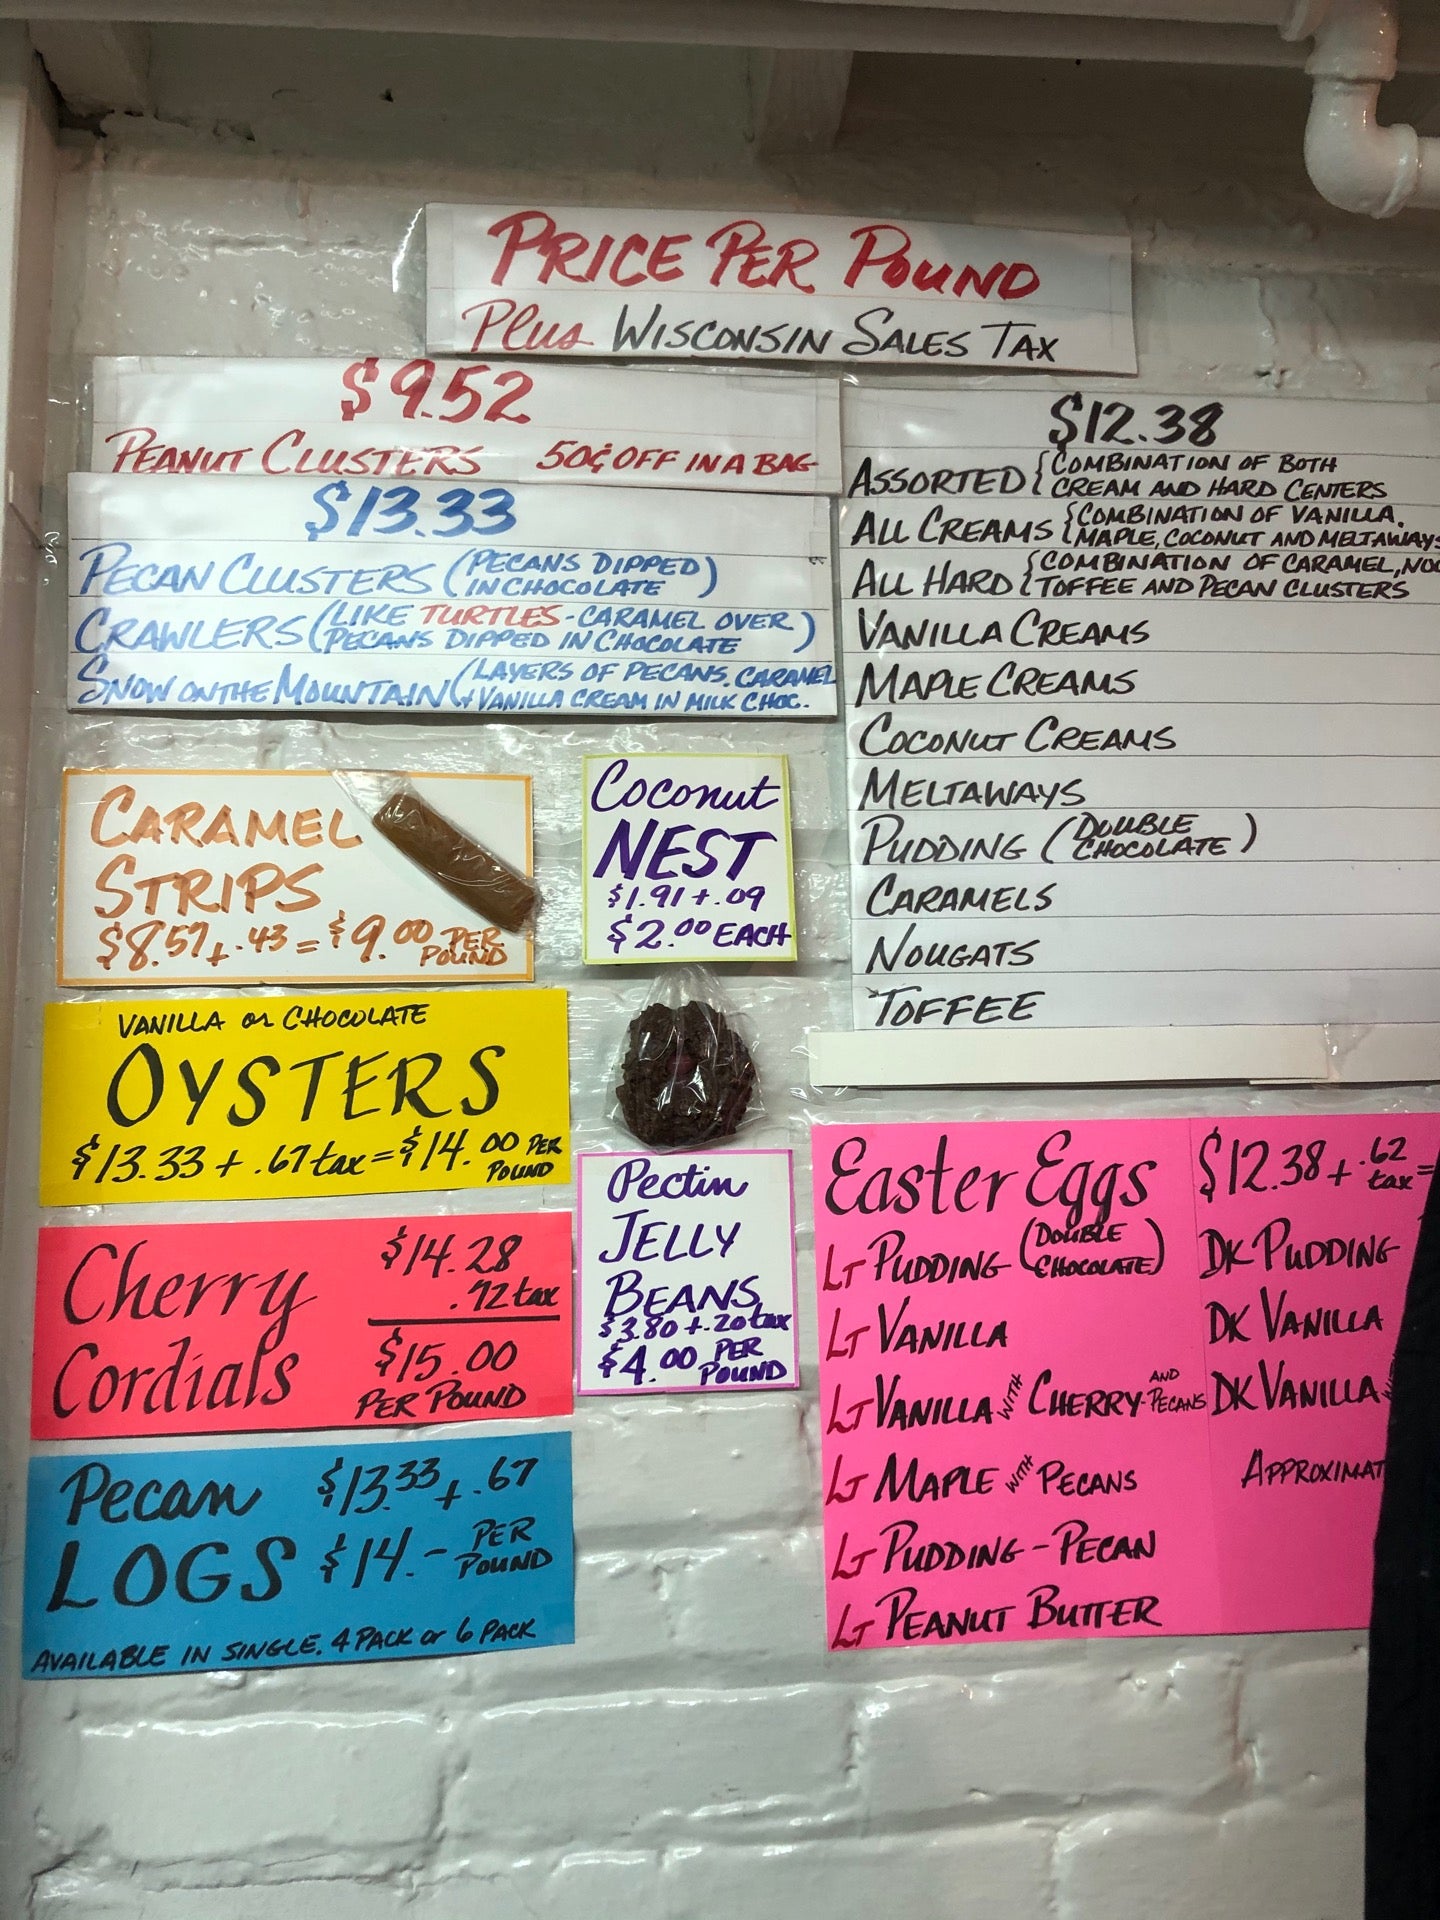 PRICE PER POUND
Plus WISCONSIN SALES TAX
$9.52
PEANUT CLUSTERS 50¢ OFF IN A BAG
$13.33
PECAN CLUSTERS (PECANS DIPPED
IN CHOCOLATE)
CRAWLERS (LIKE TURTLES-CARAMEL OVER
PECANS DIPPED IN CHOCOLATE)
SNOW ON THE MOUNTAIN (LAYERS OF PECANS, CARAMEL
+ VANILLA CREAM IN MILK CHOC.
$12.38
ASSORTED {COMBINATION OF BOTH
CREAM AND HARD CENTERS
ALL CREAMS {COMBINATION OF VANILLA,
MAPLE, COCONUT AND MELTAWAYS
ALL HARD {COMBINATION OF CARAMEL, NOU
TOFFEE AND PECAN CLUSTERS
VANILLA CREAMS
MAPLE CREAMS
COCONUT CREAMS
MELTAWAYS
PUDDING (DOUBLE
CHOCOLATE)
CARAMELS
NOUGATS
TOFFEE
CARAMEL
STRIPS
$8.57 + .43 = $9.00 PER
POUND
Coconut
NEST
$1.91 + .09
$2.00 EACH
VANILLA or CHOCOLATE
OYSTERS
$13.33 + .67 tax = $14.00 PER
POUND
Cherry
Cordials
$14.28
.72 tax
$15.00
PER POUND
Pectin
JELLY
BEANS
$3.80 + .20 tax
$4.00 PER
POUND
Pecan
LOGS
$13.33 + .67
$14.- PER
POUND
AVAILABLE IN SINGLE, 4 PACK or 6 PACK
Easter Eggs $12.38 + .62
tax =
LT PUDDING (DOUBLE
CHOCOLATE) DK PUDDING
LT VANILLA DK VANILLA
LT VANILLA WITH CHERRY AND PECANS DK VANILLA
LT MAPLE WITH PECANS APPROXIMAT
LT PUDDING - PECAN
LT PEANUT BUTTER